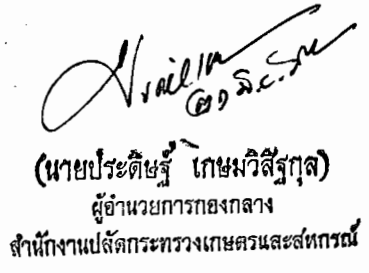 (นายประดิษฐ์ เกษมวิสิฐกุล)
ผู้อำนวยการกองกลาง
สำนักงานปลัดกระทรวงเกษตรและสหกรณ์